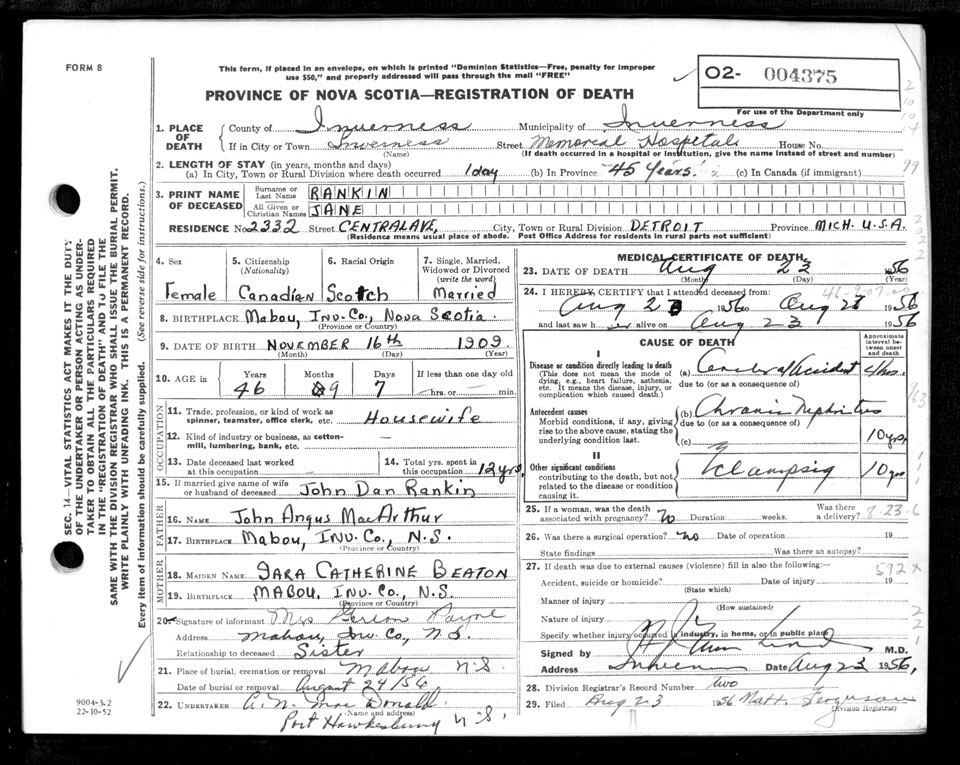 FORM 8
This form, if placed in an envelope, on which is printed "Dominion Statistics—Free, penalty for improper
use $50," and properly addressed will pass through the mail "FREE"
O2- 004375
For use of the Department only
PROVINCE OF NOVA SCOTIA—REGISTRATION OF DEATH
1. PLACE OF DEATH { County of Inverness Municipality of Inverness
If in City or Town Inverness Street Memorial Hospital House No.
(Name) (If death occurred in a hospital or institution, give the name instead of street and number)
2. LENGTH OF STAY (in years, months and days)
(a) In City, Town or Rural Division where death occurred 1 day (b) In Province 45 Years. (c) In Canada (if immigrant)
3. PRINT NAME OF DECEASED { Surname or Last Name RANKIN
All Given or Christian Names JANE
RESIDENCE No. 2332 Street CENTRAL AVE, City, Town or Rural Division DETROIT Province MICH. U.S.A.
(Residence means usual place of abode. Post Office Address for residents in rural parts not sufficient)
4. Sex Female
5. Citizenship (Nationality) Canadian
6. Racial Origin Scotch
7. Single, Married, Widowed or Divorced (write the word) Married
8. BIRTHPLACE Mabou, Inv. Co., Nova Scotia.
(Province or Country)
9. DATE OF BIRTH NOVEMBER 16th 1909.
(Month) (Day) (Year)
10. AGE in Years Months Days If less than one day old
46 9 7 hrs. or min.
OCCUPATION
11. Trade, profession, or kind of work as spinner, teamster, office clerk, etc. Housewife
12. Kind of industry or business, as cotton-mill, lumbering, bank, etc. —
13. Date deceased last worked at this occupation
14. Total yrs. spent in this occupation 12 yrs.
15. If married give name of wife or husband of deceased John Dan Rankin
FATHER
16. NAME John Angus MacArthur
17. BIRTHPLACE Mabou, Inv. Co., N.S.
(Province or Country)
MOTHER
18. MAIDEN NAME SARA CATHERINE BEATON
19. BIRTHPLACE MABOU, INV. CO., N.S.
(Province or Country)
20. Signature of informant Mrs Payne
Address Mabou, Inv Co, N.S.
Relationship to deceased Sister
21. Place of burial, cremation or removal Mabou N.S.
Date of burial or removal August 24/56
22. UNDERTAKER A. N. MacDonald
(Name and address)
Port Hawkesbury N.S.
9004-3.2
22-10-52
MEDICAL CERTIFICATE OF DEATH
23. DATE OF DEATH Aug 23 1956
(Month) (Day)
24. I HEREBY CERTIFY that I attended deceased from:
Aug 23 1956 to Aug 23 1956
and last saw her alive on Aug 23 1956
CAUSE OF DEATH
Approximate interval between onset and death
I
Disease or condition directly leading to death
(This does not mean the mode of dying, e.g., heart failure, asthenia, etc. It means the disease, injury, or complication which caused death.)
(a) Cerebral Accident 4 hrs.
due to (or as a consequence of)
Antecedent causes
Morbid conditions, if any, giving rise to the above cause, stating the underlying condition last.
(b) Chronic Nephritis
due to (or as a consequence of) 10 yrs
(c)
II
Other significant conditions
contributing to the death, but not related to the disease or condition causing it.
Eclampsia 10 yrs
25. If a woman, was the death associated with pregnancy? No Duration weeks. Was there a delivery?
26. Was there a surgical operation? No Date of operation 19
State findings Was there an autopsy?
27. If death was due to external causes (violence) fill in also the following:— 592x
Accident, suicide or homicide? Date of injury 19
(State which)
Manner of injury
(How sustained)
Nature of injury
Specify whether injury occurred in industry, in home, or in public place
Signed by M.D.
Address Date Aug 23 1956.
28. Division Registrar's Record Number two
29. Filed Aug 23 1956 Matt. Ferguson
(Division Registrar)
SEC. 14—VITAL STATISTICS ACT MAKES IT THE DUTY
OF THE UNDERTAKER OR PERSON ACTING AS UNDER-
TAKER TO OBTAIN ALL THE PARTICULARS REQUIRED
IN THE "REGISTRATION OF DEATH" AND TO FILE THE
SAME WITH THE DIVISION REGISTRAR WHO SHALL ISSUE THE BURIAL PERMIT.
WRITE PLAINLY WITH UNFADING INK. THIS IS A PERMANENT RECORD.
Every item of information should be carefully supplied. (See reverse side for instructions.)